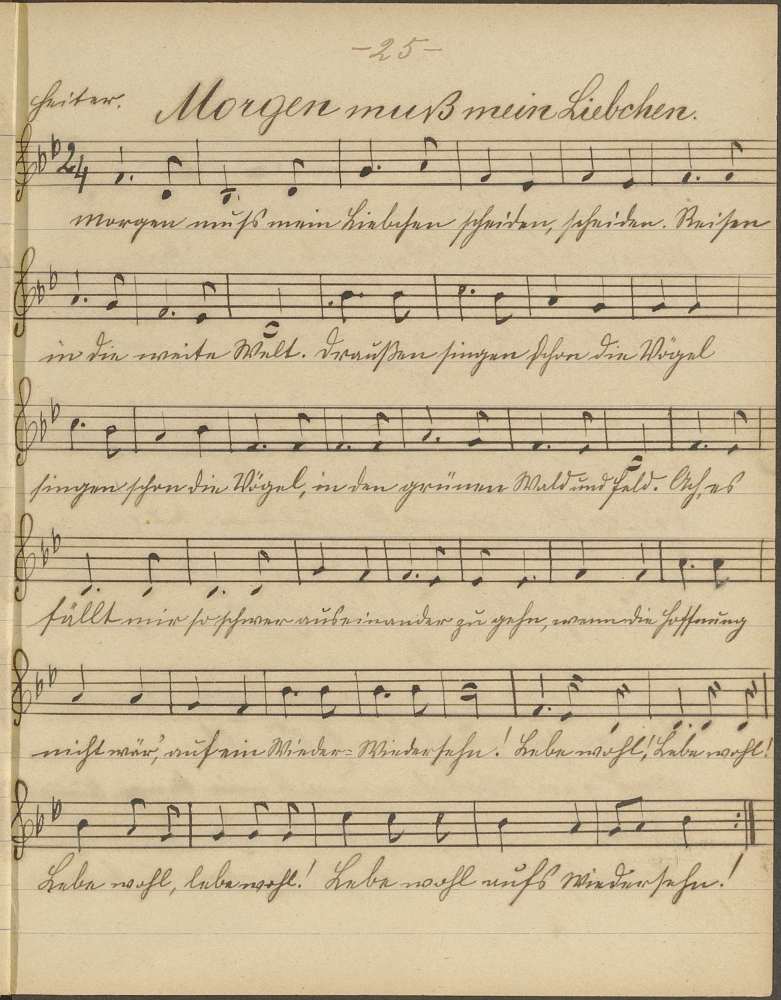 -25-
Heiter. Morgen muß mein Liebchen.
2/4
Morgen muss mein Liebchen scheiden, scheiden. Reisen
in die weite Welt. Draußen singen schon die Vögel
singen schon die Vögel, in den grünen Wald und Feld. Ach, es
fällt mir so schwer auseinander zu gehn, wenn die Hoffnung
nicht wär', auf ein Wieder-Wiedersehn! Lebe wohl! Lebe wohl!
Lebe wohl, lebe wohl! Lebe wohl aufs Wiedersehn!